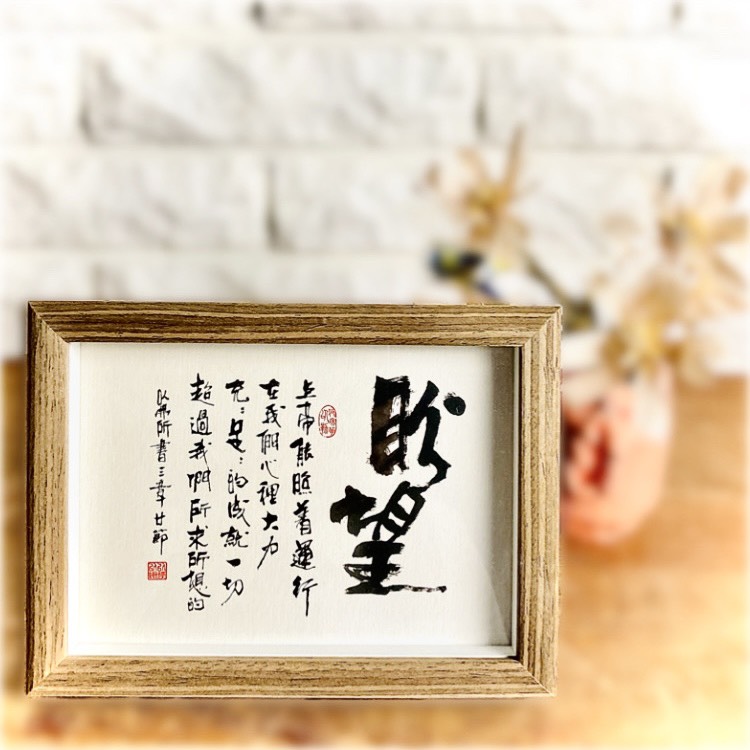 盼望
上帝能照着運行
在我們心裡大力
充充足足的成就一切
超過我們所求所想的
以弗所書三章廿節